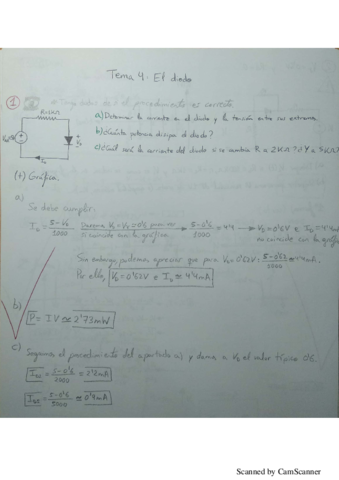 Tema 4. El diodo
1
el procedimiento es correcto.
R=1KΩ
a) Determinar la corriente en el diodo y la tensión entre sus extremos.
b) ¿Cuánta potencia disipa el diodo?
c) ¿Cuál será la corriente del diodo si se cambia R a 2KΩ? ¿Y a 5KΩ?
(+) Gráfica.
a)
Se debe cumplir:
I_D = 5-V_D / 1000
5-0'6 / 1000 = 4'4 → V_D = 0'6V e I_D = 4'4mA
no coincide con la gráfica
Sin embargo, podemos apreciar que para V_D = 0'62V; 5-0'62 / 1000 ≈ 4'4mA.
Por ello, V_D = 0'62V e I_D ≈ 4'4mA
b)
P = I·V ≈ 2'73mW
c) Seguimos el procedimiento del apartado a) y damos a V_D el valor típico 0'6.
I_D2 = 5-0'6 / 2000 = 2'2mA
5-0'6 / 5000 ≈ 0'4mA
Scanned by CamScanner